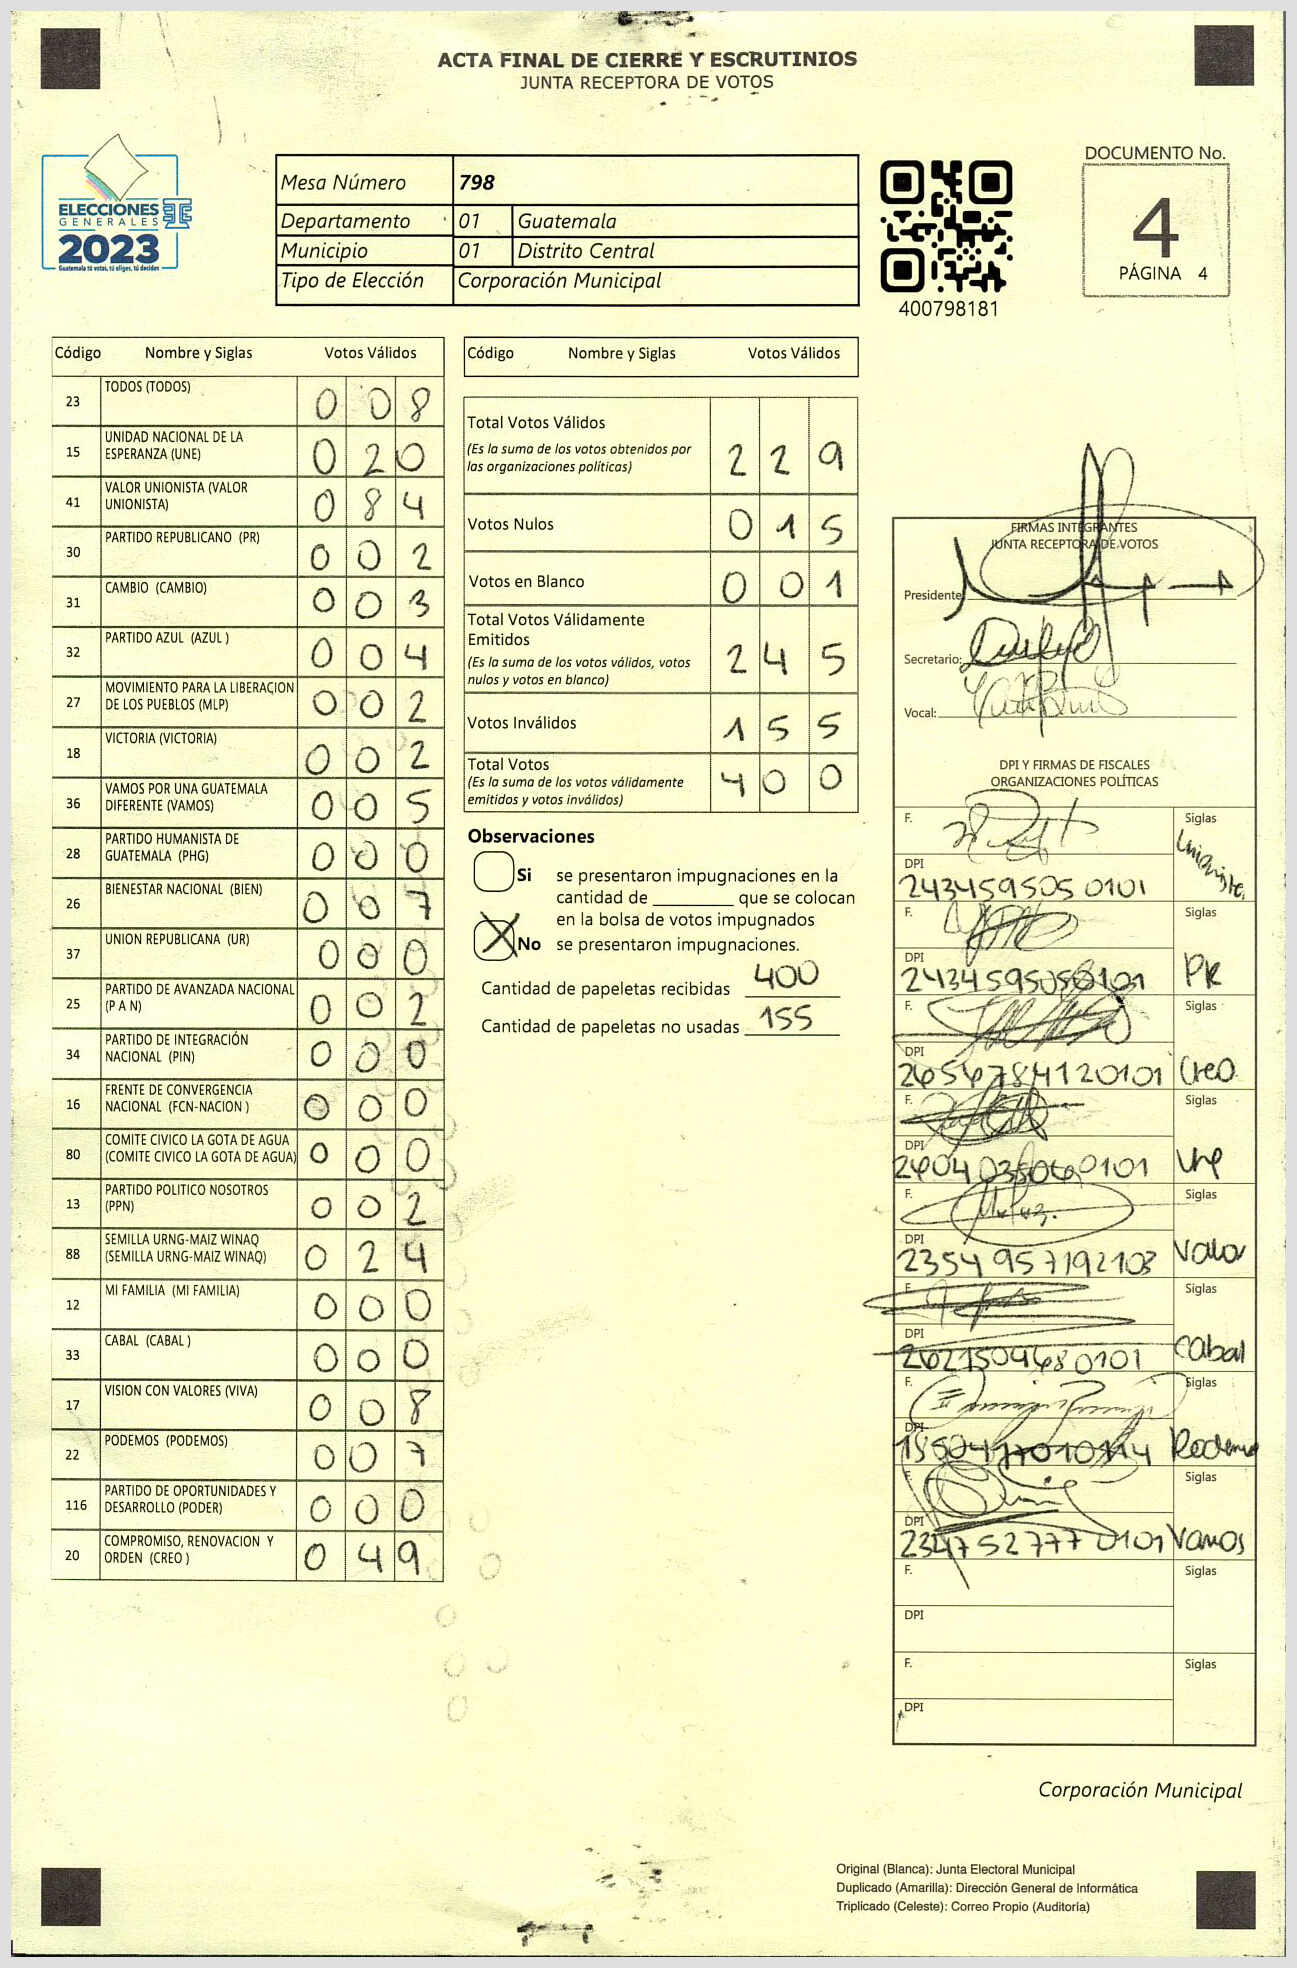 ACTA FINAL DE CIERRE Y ESCRUTINIOS
JUNTA RECEPTORA DE VOTOS
ELECCIONES
GENERALES
2023
Guatemala tú votas, tú eliges, tú decides
Mesa Número 798
Departamento 01 Guatemala
Municipio 01 Distrito Central
Tipo de Elección Corporación Municipal
400798181
DOCUMENTO No.
4
PÁGINA 4
Código Nombre y Siglas Votos Válidos
23 TODOS (TODOS) 0 0 8
15 UNIDAD NACIONAL DE LA ESPERANZA (UNE) 0 2 0
41 VALOR UNIONISTA (VALOR UNIONISTA) 0 8 4
30 PARTIDO REPUBLICANO (PR) 0 0 2
31 CAMBIO (CAMBIO) 0 0 3
32 PARTIDO AZUL (AZUL ) 0 0 4
27 MOVIMIENTO PARA LA LIBERACION DE LOS PUEBLOS (MLP) 0 0 2
18 VICTORIA (VICTORIA) 0 0 2
36 VAMOS POR UNA GUATEMALA DIFERENTE (VAMOS) 0 0 5
28 PARTIDO HUMANISTA DE GUATEMALA (PHG) 0 0 0
26 BIENESTAR NACIONAL (BIEN) 0 0 7
37 UNION REPUBLICANA (UR) 0 0 0
25 PARTIDO DE AVANZADA NACIONAL (P A N) 0 0 2
34 PARTIDO DE INTEGRACIÓN NACIONAL (PIN) 0 0 0
16 FRENTE DE CONVERGENCIA NACIONAL (FCN-NACION ) 0 0 0
80 COMITE CIVICO LA GOTA DE AGUA (COMITE CIVICO LA GOTA DE AGUA) 0 0 0
13 PARTIDO POLITICO NOSOTROS (PPN) 0 0 2
88 SEMILLA URNG-MAIZ WINAQ (SEMILLA URNG-MAIZ WINAQ) 0 2 4
12 MI FAMILIA (MI FAMILIA) 0 0 0
33 CABAL (CABAL ) 0 0 0
17 VISION CON VALORES (VIVA) 0 0 8
22 PODEMOS (PODEMOS) 0 0 7
116 PARTIDO DE OPORTUNIDADES Y DESARROLLO (PODER) 0 0 0
20 COMPROMISO, RENOVACION Y ORDEN (CREO ) 0 4 9
Código Nombre y Siglas Votos Válidos
Total Votos Válidos 2 2 9
(Es la suma de los votos obtenidos por
las organizaciones políticas)
Votos Nulos 0 1 5
Votos en Blanco 0 0 1
Total Votos Válidamente
Emitidos 2 4 5
(Es la suma de los votos válidos, votos
nulos y votos en blanco)
Votos Inválidos 1 5 5
Total Votos 4 0 0
(Es la suma de los votos válidamente
emitidos y votos inválidos)
Observaciones
Si se presentaron impugnaciones en la
cantidad de ________ que se colocan
en la bolsa de votos impugnados
No se presentaron impugnaciones.
Cantidad de papeletas recibidas 400
Cantidad de papeletas no usadas 155
FIRMAS INTEGRANTES
JUNTA RECEPTORA DE VOTOS
Presidente:
Secretario:
Vocal:
DPI Y FIRMAS DE FISCALES
ORGANIZACIONES POLÍTICAS
F. Siglas
DPI Unionista
2434595050101
F. Siglas
DPI PR
2434595050101
F. Siglas
DPI
2656784120101 Creo
F. Siglas
DPI
Une
F. Siglas
DPI
2354957192103 Valor
F. Siglas
DPI Cabal
2621509680101
F. Siglas
DPI
F. Siglas
DPI
2347527770101 Vamos
F. Siglas
DPI
F. Siglas
DPI
Corporación Municipal
Original (Blanca): Junta Electoral Municipal
Duplicado (Amarilla): Dirección General de Informática
Triplicado (Celeste): Correo Propio (Auditoría)